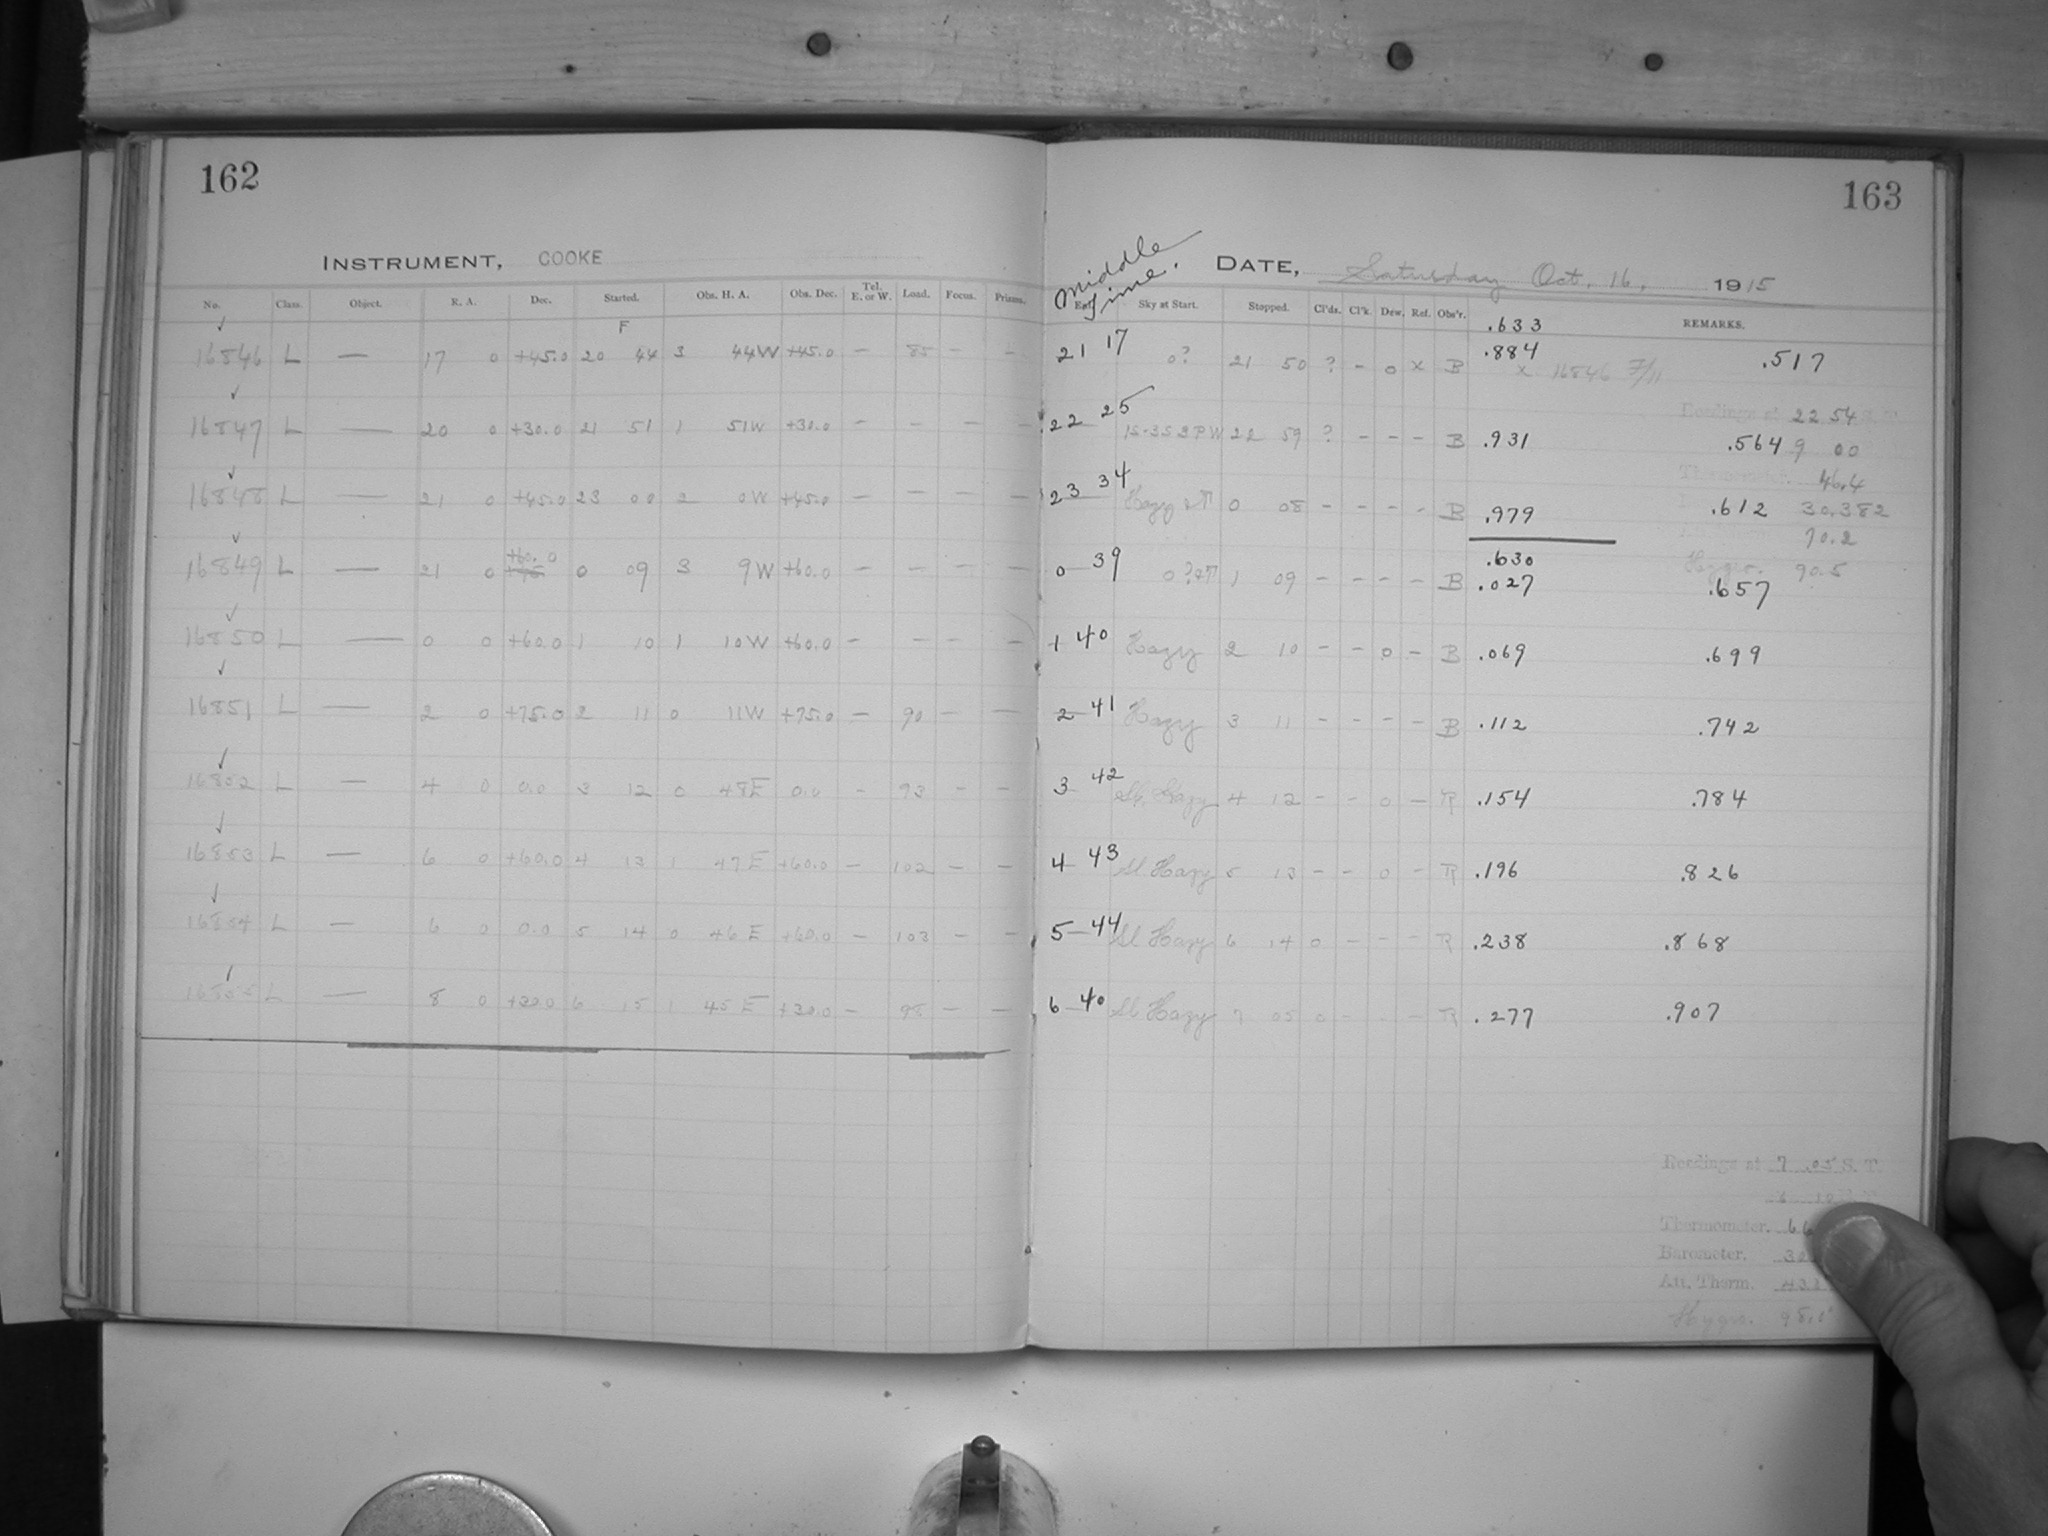 162
INSTRUMENT, COOKE
No. Class. Object. R. A. Dec. Started. Obs. H. A. Obs. Dec. Tel. E. or W. Load. Focus. Prisms.
F
16846 L — 17 0 +45.0 20 44 3 44W +45.0 — 85 - -
16847 L — 20 0 +30.0 21 51 1 51W +30.0 — — — —
16848 L — 21 0 +45.0 23 00 2 0W +45.0 — — — —
+60.0
16849 L — 21 0 0 09 3 9W +60.0 — — — —
16850 L — 0 0 +60.0 1 10 1 10W +60.0 — — — —
16851 L — 2 0 +75.0 2 11 0 11W +75.0 — 90 — —
16852 L — 4 0 0.0 3 12 0 48E 0.0 - 93 - -
16853 L — 6 0 +60.0 4 13 1 47E +60.0 — 102 — —
16854 L — 6 0 0.0 5 14 0 46E +60.0 — 103 — —
16855 L — 8 0 +30.0 6 15 1 45E +30.0 — 98 — —
163
Middle Time.
DATE, Saturday Oct. 16, 1915
Sky at Start. Stopped. Cl'ds. Cl'k. Dew. Ref. Obs'r. REMARKS.
.633
21 17 0? 21 50 ? - 0 x B .884 x 16846 F/11 .517
Readings at 22 54
22 25 22 59 ? - - - B .931 .564 9 00
46.4
23 34 Hazy 0 08 - - - - B .979 .612 30.382
70.2
.630
Hygro. 90.5
0 39 1 09 - - - - B .027 .657
1 40 Hazy 2 10 - - 0 - B .069 .699
2 41 Hazy 3 11 - - - - B .112 .742
3 42 Sl. Hazy 4 12 - - 0 — R .154 .784
4 43 Sl Hazy 5 13 - - 0 - R .196 .826
5 44 Sl Hazy 6 14 0 - - - R .238 .868
6 40 Sl Hazy 7 05 0 - - - R .277 .907
Readings at 7 .05 S. T.
Thermometer.
Barometer.
Att. Therm.
Hygro. 98.0